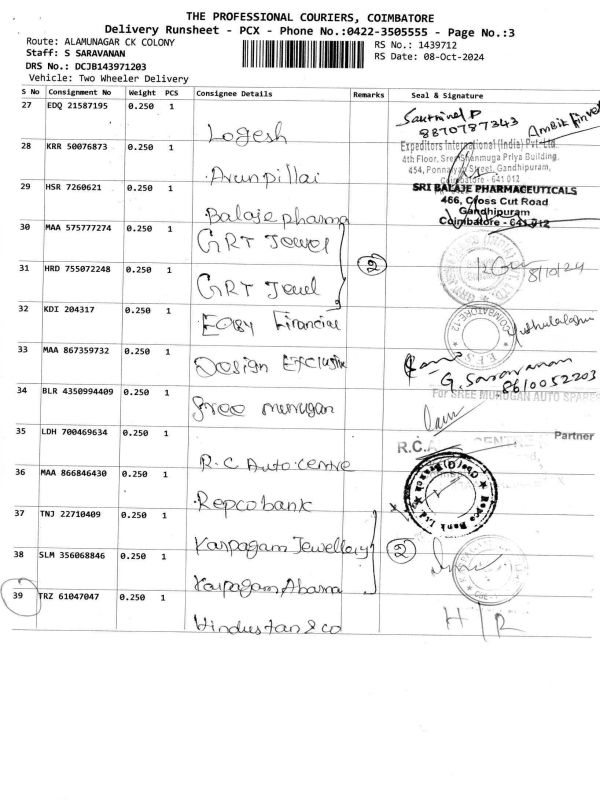 THE PROFESSIONAL COURIERS, COIMBATORE
Delivery Runsheet - PCX - Phone No.:0422-3505555 - Page No.:3
Route: ALAMUNAGAR CK COLONY
Staff: S SARAVANAN
RS No.: 1439712
DRS No.: DCJB143971203
RS Date: 08-Oct-2024
Vehicle: Two Wheeler Delivery
S No Consignment No Weight PCS Consignee Details Remarks Seal & Signature
27 EDQ 21587195 0.250 1
8870787343
Logesh
28 KRR 50076873 0.250 1
Expeditors International (India) Pvt. Ltd.
4th Floor, Sree Shanmuga Priya Building,
454, Ponnayan Street, Gandhipuram,
Coimbatore - 641 012
Arun pillai
29 HSR 7260621 0.250 1
SRI BALAJE PHARMACEUTICALS
466, Cross Cut Road
Gandhipuram
Coimbatore - 641 012
Balaje pharma
30 MAA 575777274 0.250 1
GRT Jewel
2
31 HRD 755072248 0.250 1
8/10/24
GRT Jewel
32 KDI 204317 0.250 1
Financial
COIMBATORE-12
33 MAA 867359732 0.250 1
Design Exclusive
G. Saravanan
8610052203
34 BLR 4350994409 0.250 1
For SREE MURUGAN AUTO SPARES
Sree murugan
35 LDH 700469634 0.250 1
Partner
R.C.A
R.C Auto centre
36 MAA 866846430 0.250 1
Repco Bank Ltd.
Repco bank
37 TNJ 22710409 0.250 1
Karpagam Jewellery
2
38 SLM 356068846 0.250 1
Karpagam
39 TRZ 61047047 0.250 1
Hindustan & co
H/R